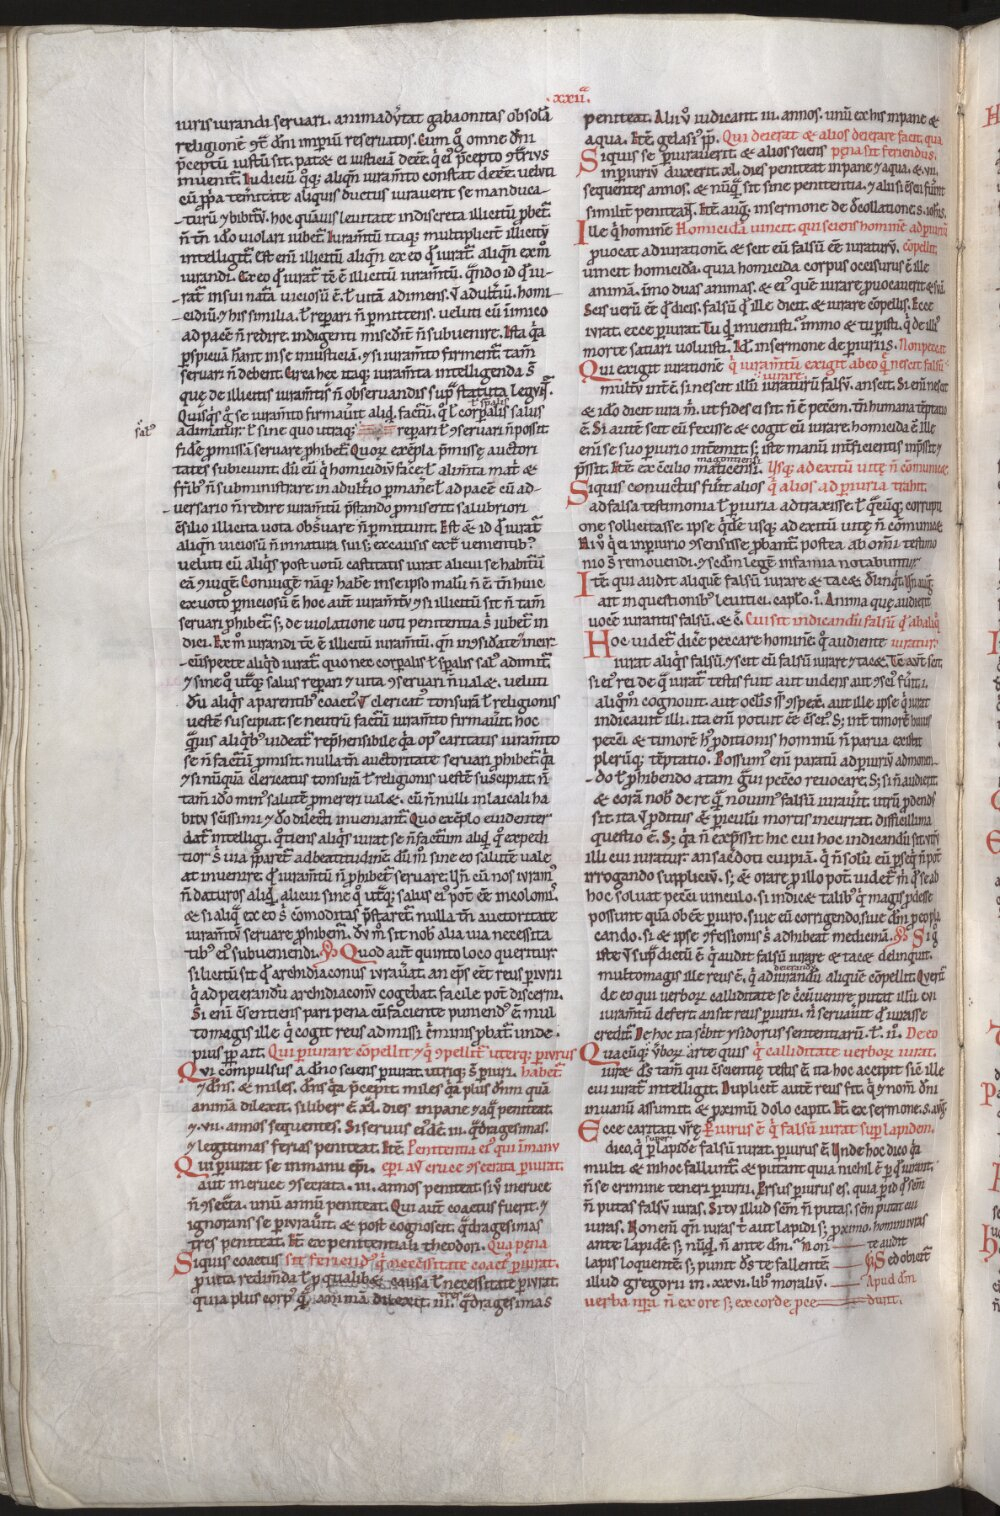 .xxii.
iuris iurandi seruari. animaduertat gabaonitas obsola
religionē
p̄ceptū iustū sit. pateat
inuenit. Iudiciū
eū ppa temeritate aliquis ductus iurauerit se manduca-
turū ł bibiturū. hoc quāuis leuitate indiscreta illicitū phet.
ñ tñ idō uiolari iubet. Iuramtū itaq; multiplicit illicitū
intelligit. Est enī illicitū aliqn ex eo qd iurat. aliqn ex mō
iurandi. Ex eo qd iurat tē ē illicitū iuramtū. qndo id qd iu-
rat in sui nata uiciosū ē. ł uitā adimens. ł adultiū. homi-
cidiū ł his similia. ł reperari ñ pmittens. ueluti cū inimico
ad pacē ñ redire. indigenti miseđit ñ subuenire. Ista
pspicuā hnt in se iniusticiā. ł si iuramto firment. tam
seruari ñ debent. Circa hec itaq; iuramta intelligenda s̄
que de illicitis iuramtis ñ obseruandis sup statuta leguī.
Quisqs g se iuramto firmauit aliqd facturū. qd ł corpalis salus
ł spalis
adimatur. ł sine quo utraq; reperari ł seruari ñ possit
fidē pmissā seruare phibet. Quoꝝ exepla pmisse auctori
tates subiciunt. dū eū q homicidiū facere ł alimta mat &
frib ñ subministrare. in adultio pmanere ł ad pacē cū ad-
uersario ñ redire iuramtū pstando pmiserit salubriori
ēsilio illicita uota obsuare ñ pmittunt. Est & id qd iurat
aliqn uiciosū ñ in natura sui s; ex causis extra uenientib?
ueluti cū aliqs post uotū castitatis iurat alicui se habitū
eā ciugē. Coniugē nāq; habē in se ipso malū ñ ē. tñ huic
ex uoto pniciosū ē
seruari phibet. s; de uiolatione uoti penitentia s̄ iubet in
dici. Ex mō iurandi tē ē illicitū iuramtū. qn
cūspecte aliqd iurat. quo nec corpalis ł spalis sal adimit.
ł sine qd utq; salus reperari ł uita seruari ñ ualet. ueluti
dū aliqs a parentib coact. ł clericat tonsurā ł religionis
uestē suscipiat. se neutrū facturū iuramto firmauit. hoc
quis aliqb uideat rephensibile qa op caritatis iuramto
se ñ facturū pmisit. nulla tñ auctoritate seruari phibet. qa
ł si nūquā clericatus tonsurā ł religionis uestē suscipiat. ñ
tam idō min salutē pmereri ualet. cū ñ nulli in laicali ha
bitu scissimi ł do dilecti inueniant. Quo exeplo euidenter
dat intelligi. qtiens aliqs iurat se ñ facturum aliqd qd expedi
tior s̄ uia pparet ad beatitudinē. dū m sine eo salutē uale
at inuenire. qd iuramtū ñ phibet seruare. Un cū nos iuram
ñ daturos aliqd alicui sine qd utq; salus ei pot ēe incolomis.
& si aliq ex eo s̄ cōmoditas pstaret. nulla tñ auctoritate
iuramtū seruare phibem. dū m sit nob alia uia necessita
tib ei subueniendi. Quod aūt quinto loco queritur.
si licitū sit qd archidiaconus iurauat. an eps eēt reus piurii
q ad peierandū archidiaconū cogebat. facile pot discerni.
Si enī ēsentiens pari pena cū faciente puniend ē. mul
tomagis ille q cogit reus admissi cminis pbat. unde
pius pp ait. Qui piurare cōpellit & q ɔpellit uterq; piurus
Qui compulsus a dno sciens piurat. utriq; s̄ piuri. habet.
ł dns. & miles. dns qa pcepit. miles qa plus dnm quā
animā dilexit. si liber ē. xl. dies in pane & aq peniteat.
ł .vii. annos sequentes. Si seruus ei dē. iii. qdragesimas.
ł legitimas ferias peniteat. Itē. Penitentia ei qui in manu
Qui piurat se in manu epi. epi aū cruce ɔsecrata piurat.
aut in cruce ɔsecrata. iii. annos peniteat. si ū in cruce
ñ ɔsecta. unū annū peniteat. Qui aūt coactus fuerit. ł
ignorans se piurauit. & post cognoscit. qdragesimas
tres peniteat. It. ex penitentiali theodori. Qua pena
Siquis coactus sit feriend q necessitate coact piurat.
p uita redimda ł p qualibet causa ł necessitate piurat.
quia plus corp q animā dilexit. iii. qdragesimas
peniteat. Alii ū iudicant iii. annos. unū ex his in pane &
aqua. Itē. gelasi pp. Qui deierat & alios deierare facit. qua
Siquis se piurauerit. & alios sciens pena sit feriendus.
in piuriū duxerit. xl. dies peniteat in pane & aqua. & vii.
sequentes annos. & nūq sit sine penitentia. & alii si ēscii fuerint
similit peniteant. Itē aug. in sermone de decollatione. s. iohis.
Ille q hominē Homicidā uincit. qui sciens hominē ad piuriū
puocat ad iurationē. & scit eū falsū ēē iuraturū. cōpellit.
uincit homicidā. quia homicida corpus occisurus ē. ille
animā. imo duas animas. & ei que iurare puocauit & suā.
Scis ueru ēē qd dicis. falsū qd ille dicit. & iurare cōpellis. Ecce
iurat. ecce piurat. Tu qd inuenisti. immo & tu piisti. q de illi
morte satiari uoluisti. Id in sermone de piuriis. Non peccat
Qui exigit iurationē q iuramtū exigit ab eo q nescit falsū
iurare
multū int ē. si nescit illū iuraturū falsū. an scit. Si enī nescit
& idō dicit iura m. ut fides ei sit. ñ ē pccm. tñ humana teptatio
ē. Si autē scit eū fecisse. & cogit eū iurare. homicida ē. Ille
enī se suo piurio intemit. s; iste manū intficientis
pssit. Itē. ex ēcilio maticensi. Usq; ad exitū uite ñ cōmunicet
magontiensi
Siquis conuictus fuerit alios q alios ad piuria trahit.
ad falsa testimonia ł piuria adtraxisse. ł quēuq; corrupti
one sollicitasse. ipse qdē usq; ad exitū uitę ñ cōmunicet.
Hi ū q ei in piurio ɔsensisse pbant. postea ab omi testimo
nio s̄ remouendi. ł scdm legē infamia notabuntur.
Itē. qui audit aliquē falsū iurare & tacet. delinqt. Un aug.
ait in questionib leuitici. caplo. i. Anima que audierit
uocē iurantis falsū. & c̄. Cui sit indicandū falsū qd ab aliq
Hoc uidet dicē peccare hominē qd audiente iuratur.
iurat aliqs falsū. ł scit eū falsū iurare & tacet.
si ei rei de q iurat testis fuit aut uidens aut ɔscius fuit. i.
aliqm cognouit. aut ocłis ss ɔspexit. aut ille ipse q iurat
indicauit illi. ita enī potuit ēe ēscius. S; int timorē huius
pccti & timorē hɔ pditionis hominū ñ parua existit
plerūq; teptatio. Possum enī paratū ad piuriū admonen-
do ł phibendo a tam gui pccō reuocare. S; si ñ audierit.
& corā nob de re q nouim falsū iurauit. utrū pdend
sit. ita ut pditus & piculū mortis incurrat. difficillima
questio ē. S; qa ñ expssit hic cui hoc indicandū sit. utrū
illi cui iuratur. an sacdoti cuipiā. q ñ solū eū pseq ñ pot
irrogando suppliciū. s; & orare p illo pot. uidet m qd se ab
hoc soluat pccti uinculo. si indicet talib q magis pdesse
possunt quā obēē piuro. siue eū corrigendo. siue dm p eo pla
cando. si & ipse ɔfessionis s̄ adhibeat medicinā. Si g
iste ut sup dictū ē q audit falsū iurare & tacet delinquit.
multomagis ille reus ē. q ad iurandū aliquē cōpellit. Querit
deierandū
de eo qui uerboꝝ calliditate se ēcuuenire putat illū. cui
iuramtū defert. an sit reus piurii. ñ seruauit qd iurasse
credit. De hoc ita scbit ysidorus sententiarū. ł. ii. De eo
Quacūq; uboꝝ arte quis q calliditate uerboꝝ iurat.
iuret. ds tam qui ēscientię testis ē. ita hoc accipit sic ille
cui iurat intelligit. Duplicit autē reus fit. q ł nom dni
in uanū assumit. & pximū dolo capit. It. ex sermone. s. aug.
Ecce caritati urę Piurus ē q falsū iurat sup lapidem.
dico. q p lapidē falsū iurat. piurus ē. Unde hoc dico qa
super
multi & in hoc fallunt. & putant quia nichil ē p qd iurant.
ñ se crimine teneri piurii. Prsus piurus es. quia p id qd scm
ñ putas falsū iuras. Si tu illud scm ñ putas. scm putat cui
iuras. Non enī qn iuras t aut lapidi s; proximo. hominiuras
ante lapidē s; nūqd ñ ante dm. Non te audit
lapis loquentē s; punit ds te fallentē. Sed obicit
illud gregorii in .xxvi. lib moraliū. Apud dm
uerba nra ñ ex ore s; ex corde pce dunt.